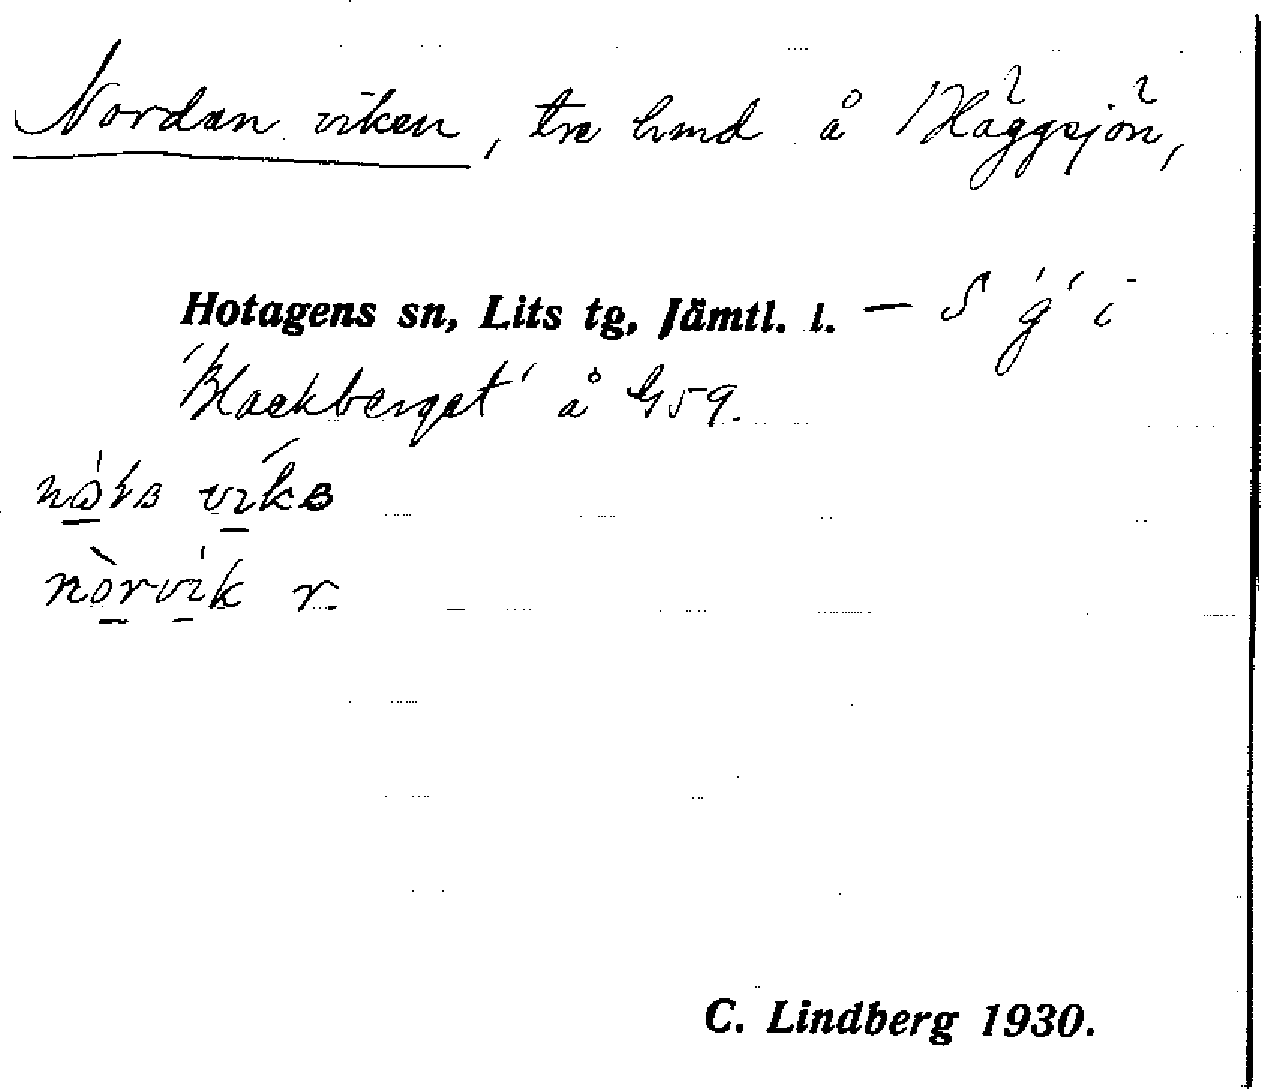 Nordan viken, tre hmd å 'Häggsjön,
Hotagens sn, Lits tg, Jämtl. l. — S 'g' i
'Blackberget' å G59.
C. Lindberg 1930.